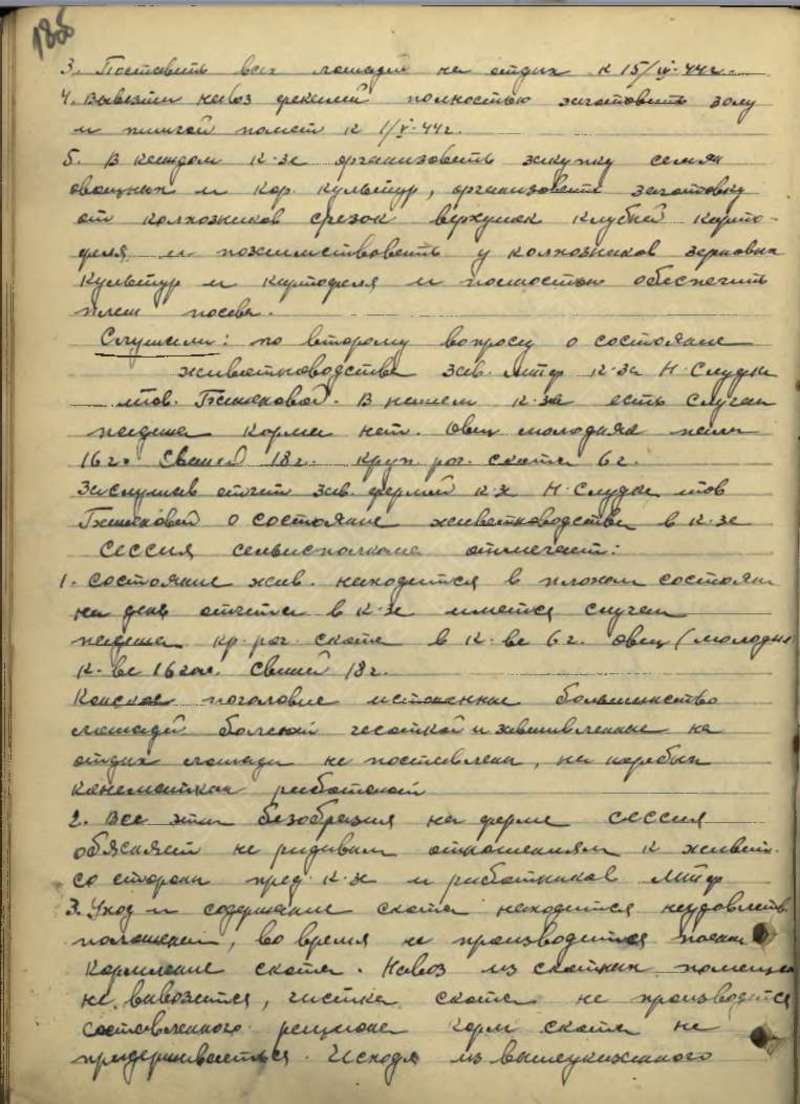 188
3. Поставить всех лошадей на отдых к 15/IV-44 г.
4. Вывезти навоз фекалий полностью заготовить золу
и птичей помет к 1/V-44 г.
5. В каждом к-зе организовать закупку семян
овощных и кор. культур, организовать заготовку
от колхозников срезок верхушек клубней карто-
феля и позаимствовать у колхозников зерновых
культур и картофеля и полностью обеспечить
план посева.
Слушали: по второму вопросу о состояние
животноводства зав. МТФ к-за Н-Слудка
тов. В нашем к-зе есть случаи
падежа корма нет. Овец молодняк пали
16 г. Свиней 18 г. круп. рог. скота 6 г.
Заслушав отчет зав. фермой к-х Н-Слудка тов
о состояние животноводства в к-зе
сессия сельисполкома отмечает:
1. Состояние жив. находится в плохом состоян
на день отчета в к-зе имется случаи
падежа кр. рог. скота в к-ве 6 г. овец (молодня
к-ве 16 гол. свиней 18 г.
Конское поголовие истощенные большинство
лошадей болеют чесоткой и завшивленные на
отдых лошади не поставлены, на
работают
2. Все эти безобразия на ферме сессия
обясняет не радивым отношениям к живот.
со стороны пред. к-х и работников МТФ
3. Уход и содержание скота находится неудовлетв.
положении, во время не производится поение
Кормление скота. Навоз из скотных помещен
не вывозится, чистка скота не производится
составленного рациона корм скота не
придерживается. Исходя из вышеуказанного